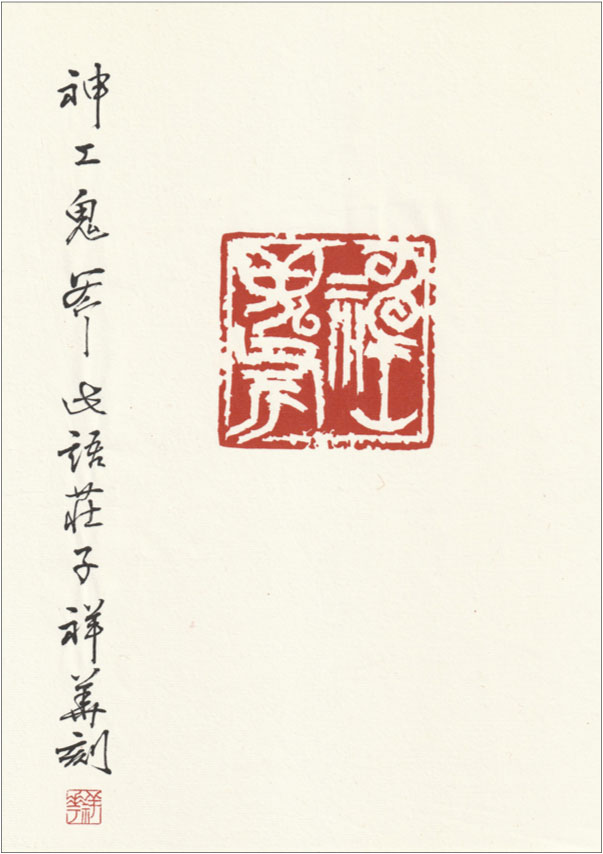 神工鬼斧
神工鬼斧此語莊子祥華刻
祥華